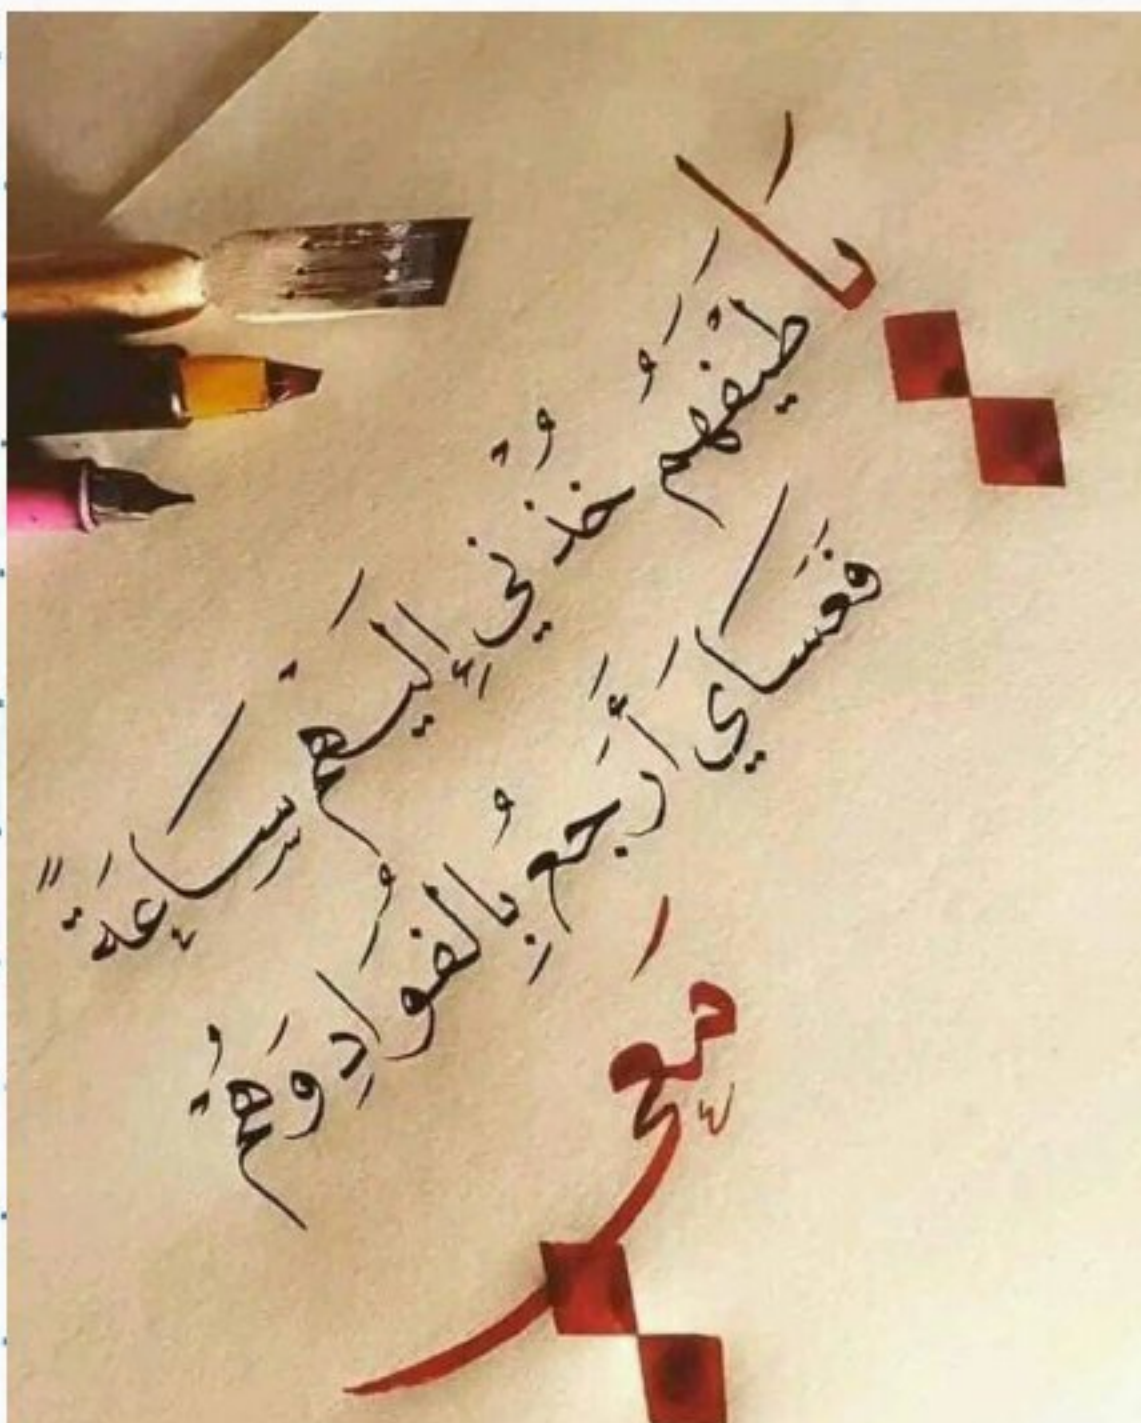 يَا
طَيْفَهُم خُذْنِي إِلَيْهِم سَاعَةً
فَعَسَايَ أَرجَعُ بِالفُؤَادِ وَهُمْ
مَعِي